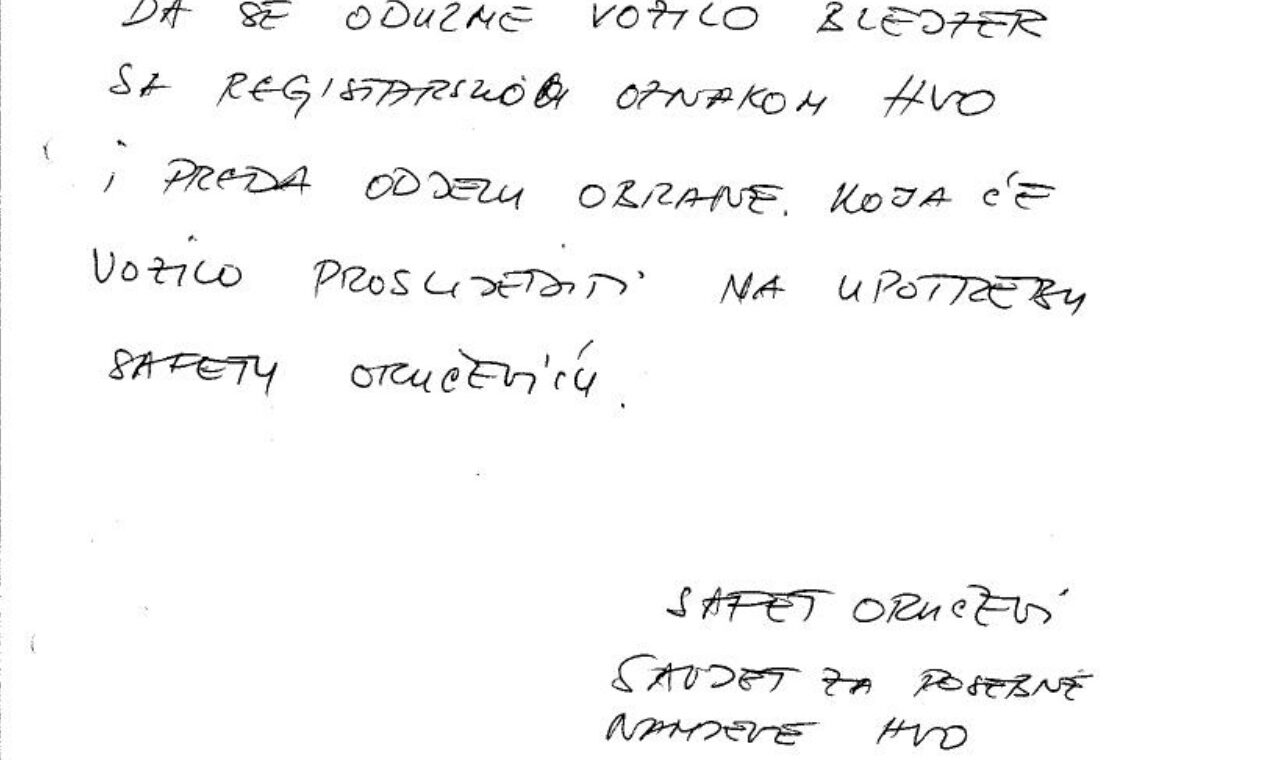 DA SE ODUZME VOZILO BLEJZER
SA REGISTARSKOM OZNAKOM HVO
i PREDA ODJELU OBRANE. KOJA ĆE
VOZILO PROSLIJEDITI NA UPOTREBU
SAFETU ORUČEVIĆU.
SAFET ORUČEVI
SAVJET ZA POSEBNE
NAMJENE HVO